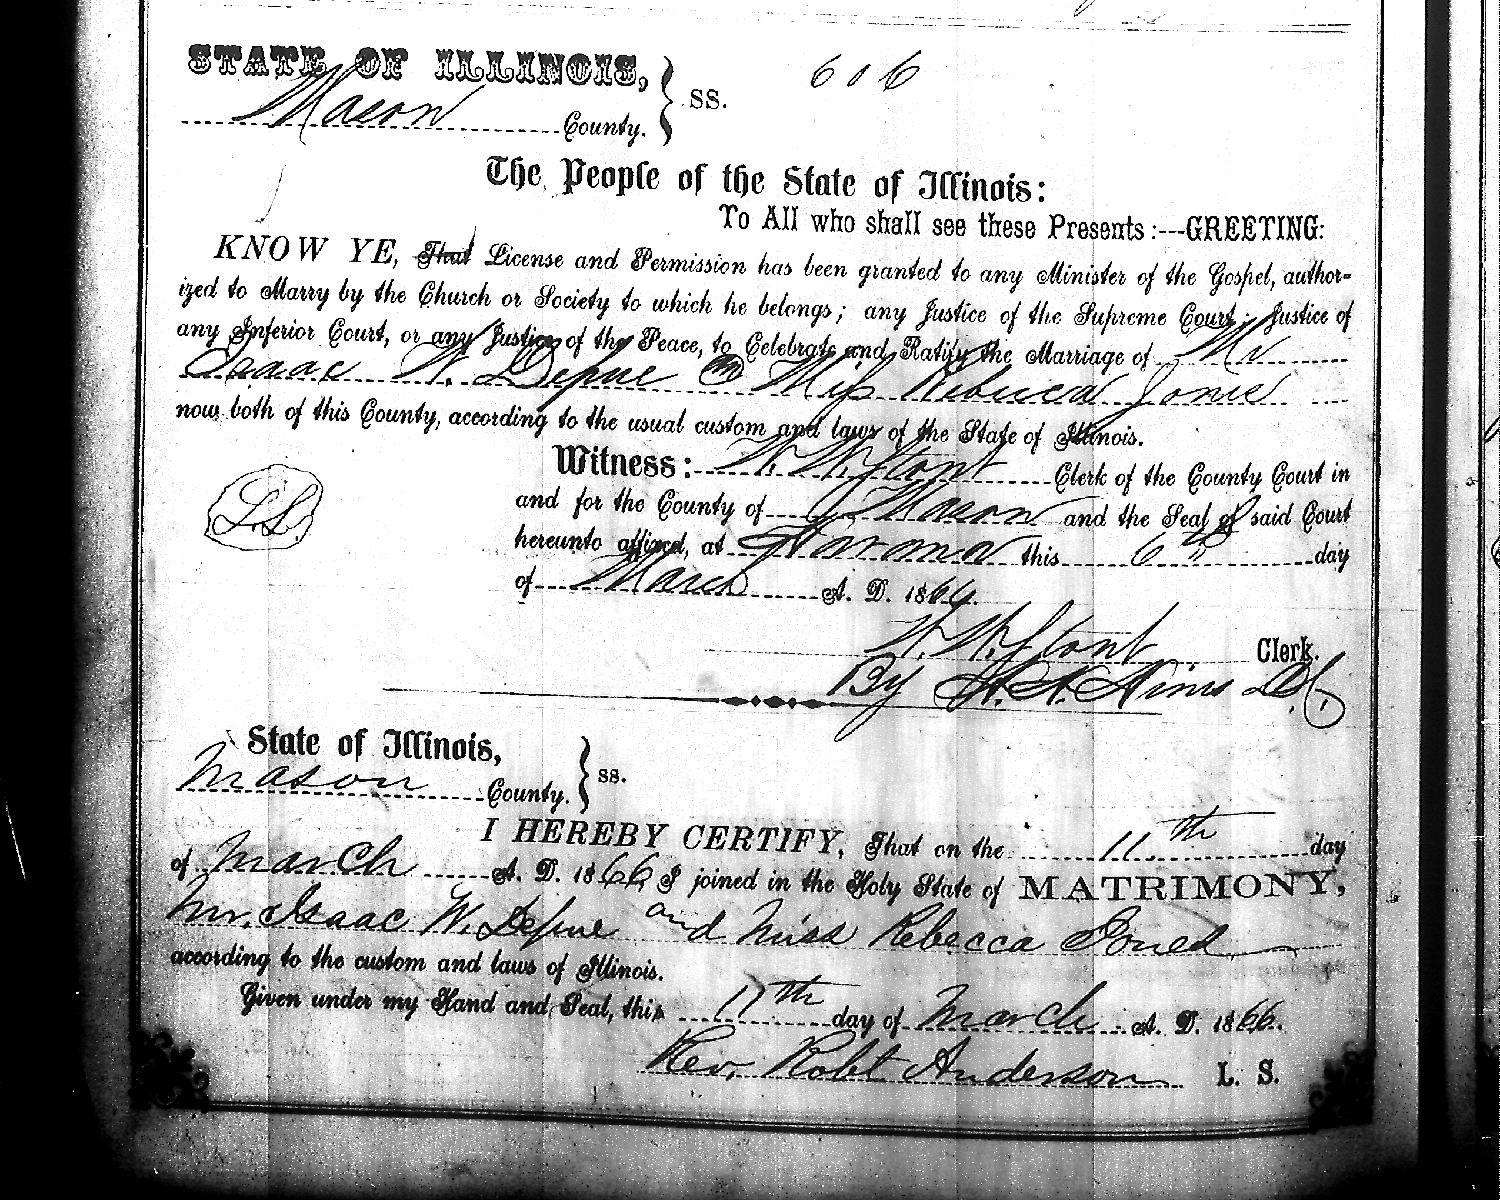 STATE OF ILLINOIS, } SS. 606
Mason County.
The People of the State of Illinois:
To All who shall see these Presents:---GREETING:
KNOW YE, That License and Permission has been granted to any Minister of the Gospel, author-
ized to Marry by the Church or Society to which he belongs; any Justice of the Supreme Court; Justice of
any Inferior Court, or any Justice of the Peace, to Celebrate and Ratify the Marriage of Mr
Isaac W. Depue & Miss Rebecca Jones
now both of this County, according to the usual custom and laws of the State of Illinois.
L.S.
Witness: Clerk of the County Court in
and for the County of Mason and the Seal of said Court
hereunto affixed, at Havana this 6th day
of March A. D. 1866.
Clerk.
By D.C.
State of Illinois, } ss.
Mason County.
I HEREBY CERTIFY, That on the 11th day
of March A. D. 1866 I joined in the Holy State of MATRIMONY,
Mr. Isaac W. Depue and Miss Rebecca Jones
according to the custom and laws of Illinois.
Given under my Hand and Seal, this 11th day of March A. D. 1866.
Rev. Robt Anderson L. S.